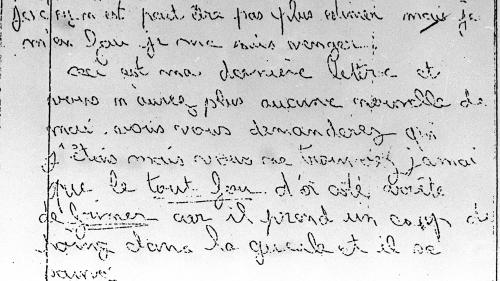 n est peut être pas plus
m'en fou je me suis venger
ceci est ma dernière lettre et
vous n'aurez plus aucune nouvelle de
moi. vous vous demanderez qui
j'étais mais vous ne trouverez jamai
que le tout fou d'à coté
de car il prend un coup de
poing dans la gueule et il se